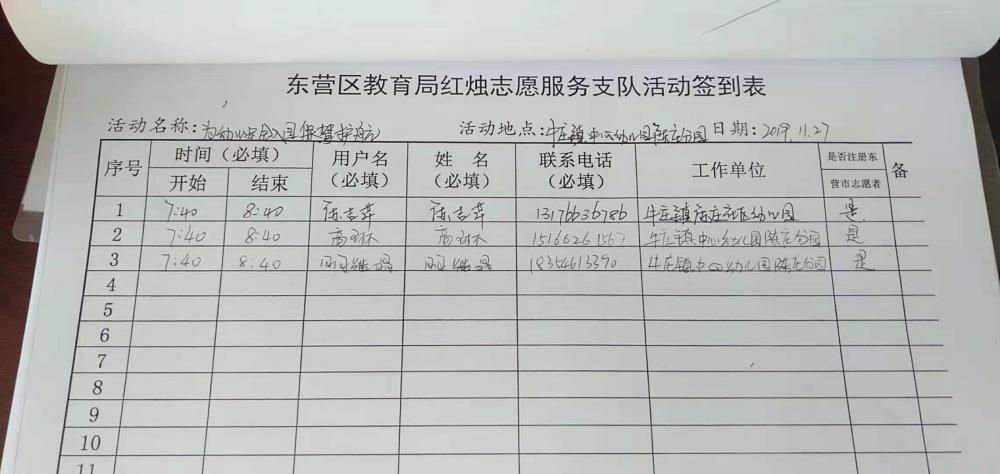 东营区教育局红烛志愿服务支队活动签到表
活动名称:为幼儿安全入园保驾护航 活动地点:牛庄镇中心幼儿园陈庄分园 日期:2019.11.27
序号 时间（必填） 用户名（必填） 姓 名（必填） 联系电话（必填） 工作单位 是否注册东营市志愿者 备
开始 结束
1 7:40 8:40 13176636786 牛庄镇陈庄社区幼儿园 是
2 7:40 8:40 15166261567 牛庄镇中心幼儿园陈庄分园 是
3 7:40 8:40 18354613390 牛庄镇中心幼儿园陈庄分园 是
4
5
6
7
8
9
10
11